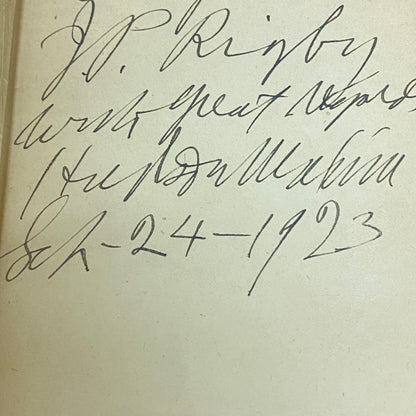 J. P. Rigby
with great regards
Hudson Maxim
Sep - 24 - 1923